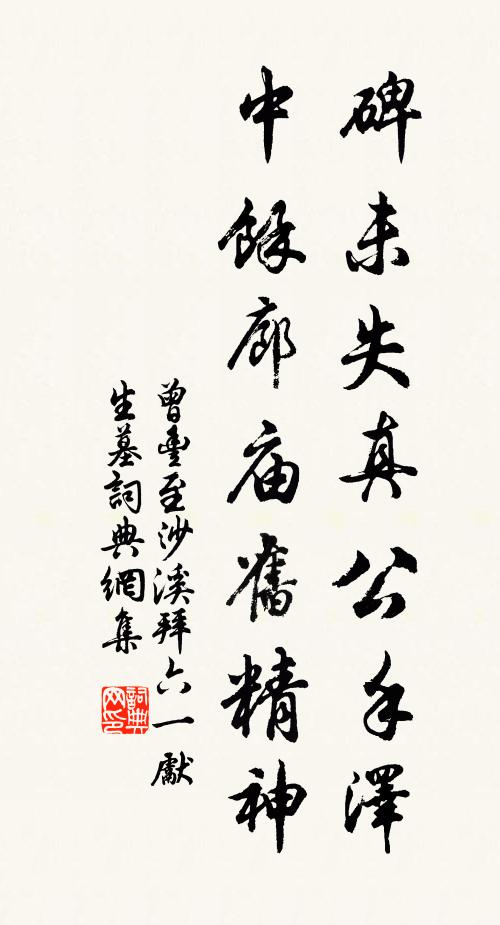 碑未失真公手澤
中餘廊庙舊精神
曾豊至沙溪拜六一獻
生墓詞典網集
詞典网印